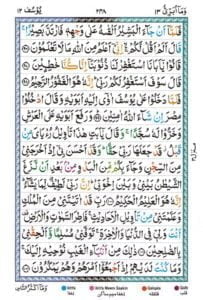 وَمَآ اُبَرِّئُ ١٣ ٢٣٨ يُوْسُف ١٢
فَلَمَّآ اَنْ جَآءَ الْبَشِيْرُ اَلْقٰىهُ عَلٰى وَجْهِهٖ فَارْتَدَّ بَصِيْرًا
قَالَ اَلَمْ اَقُلْ لَّكُمْ اِنِّىْٓ اَعْلَمُ مِنَ اللّٰهِ مَا لَا تَعْلَمُوْنَ
قَالُوْا يٰٓاَبَانَا اسْتَغْفِرْ لَنَا ذُنُوْبَنَآ اِنَّا كُنَّا خٰطِـِٕيْنَ
قَالَ سَوْفَ اَسْتَغْفِرُ لَكُمْ رَبِّىْ اِنَّهٗ هُوَ الْغَفُوْرُ الرَّحِيْمُ
فَلَمَّا دَخَلُوْا عَلٰى يُوْسُفَ اٰوٰٓى اِلَيْهِ اَبَوَيْهِ وَقَالَ ادْخُلُوْا
مِصْرَ اِنْ شَآءَ اللّٰهُ اٰمِنِيْنَ وَرَفَعَ اَبَوَيْهِ عَلَى الْعَرْشِ
وَخَرُّوْا لَهٗ سُجَّدًا وَقَالَ يٰٓاَبَتِ هٰذَا تَاْوِيْلُ رُءْيَاىَ مِنْ
قَبْلُ قَدْ جَعَلَهَا رَبِّىْ حَقًّا وَقَدْ اَحْسَنَ بِىْٓ اِذْ اَخْرَجَنِىْ
مِنَ السِّجْنِ وَجَآءَ بِكُمْ مِّنَ الْبَدْوِ مِنْۢ بَعْدِ اَنْ نَّزَغَ
الشَّيْطٰنُ بَيْنِىْ وَبَيْنَ اِخْوَتِىْ اِنَّ رَبِّىْ لَطِيْفٌ لِّمَا يَشَآءُ
اِنَّهٗ هُوَ الْعَلِيْمُ الْحَكِيْمُ رَبِّ قَدْ اٰتَيْتَنِىْ مِنَ الْمُلْكِ
وَعَلَّمْتَنِىْ مِنْ تَاْوِيْلِ الْاَحَادِيْثِ فَاطِرَ السَّمٰوٰتِ وَالْاَرْضِ
اَنْتَ وَلِيّٖ فِى الدُّنْيَا وَالْاٰخِرَةِ تَوَفَّنِىْ مُسْلِمًا وَّاَلْحِقْنِىْ
بِالصّٰلِحِيْنَ ذٰلِكَ مِنْ اَنْۢبَآءِ الْغَيْبِ نُوْحِيْهِ اِلَيْكَ
وَمَا كُنْتَ لَدَيْهِمْ اِذْ اَجْمَعُوْٓا اَمْرَهُمْ وَهُمْ يَمْكُرُوْنَ
وَمَآ اَكْثَرُ النَّاسِ